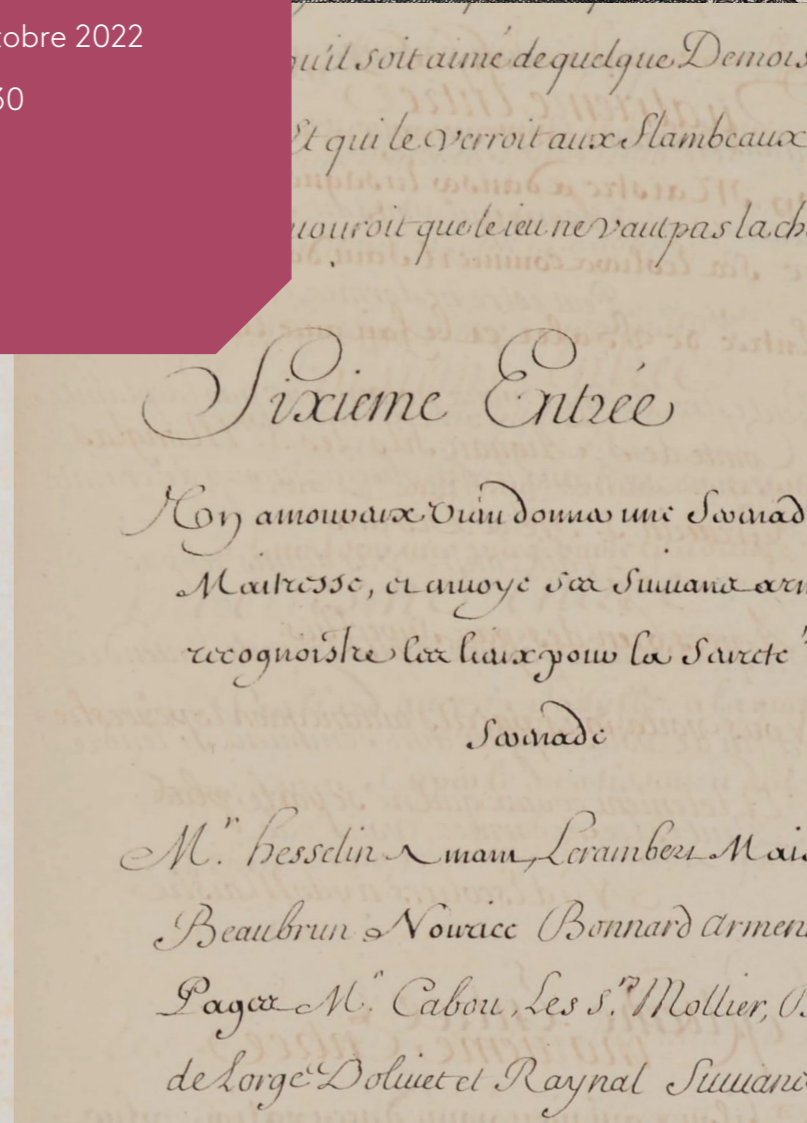 tobre 2022
30
qu'il soit aimé de quelque Demois
Et qui le verroit aux flambeaux
que le ieu ne vaut pas la ch
Sixieme Entrée
Un amoureux vient donner une Serenad
Maitresse, et envoye ses suivans arm
recognoistre les lieux pour la seureté
Serenade
M.r hesselin Amant, Lerambert Mais
Beaubrun Nourice Bonnard armen
Pages M.r Cabou, Les s.rs Mollier,
de Lorge Dolivet et Raynal Suivans